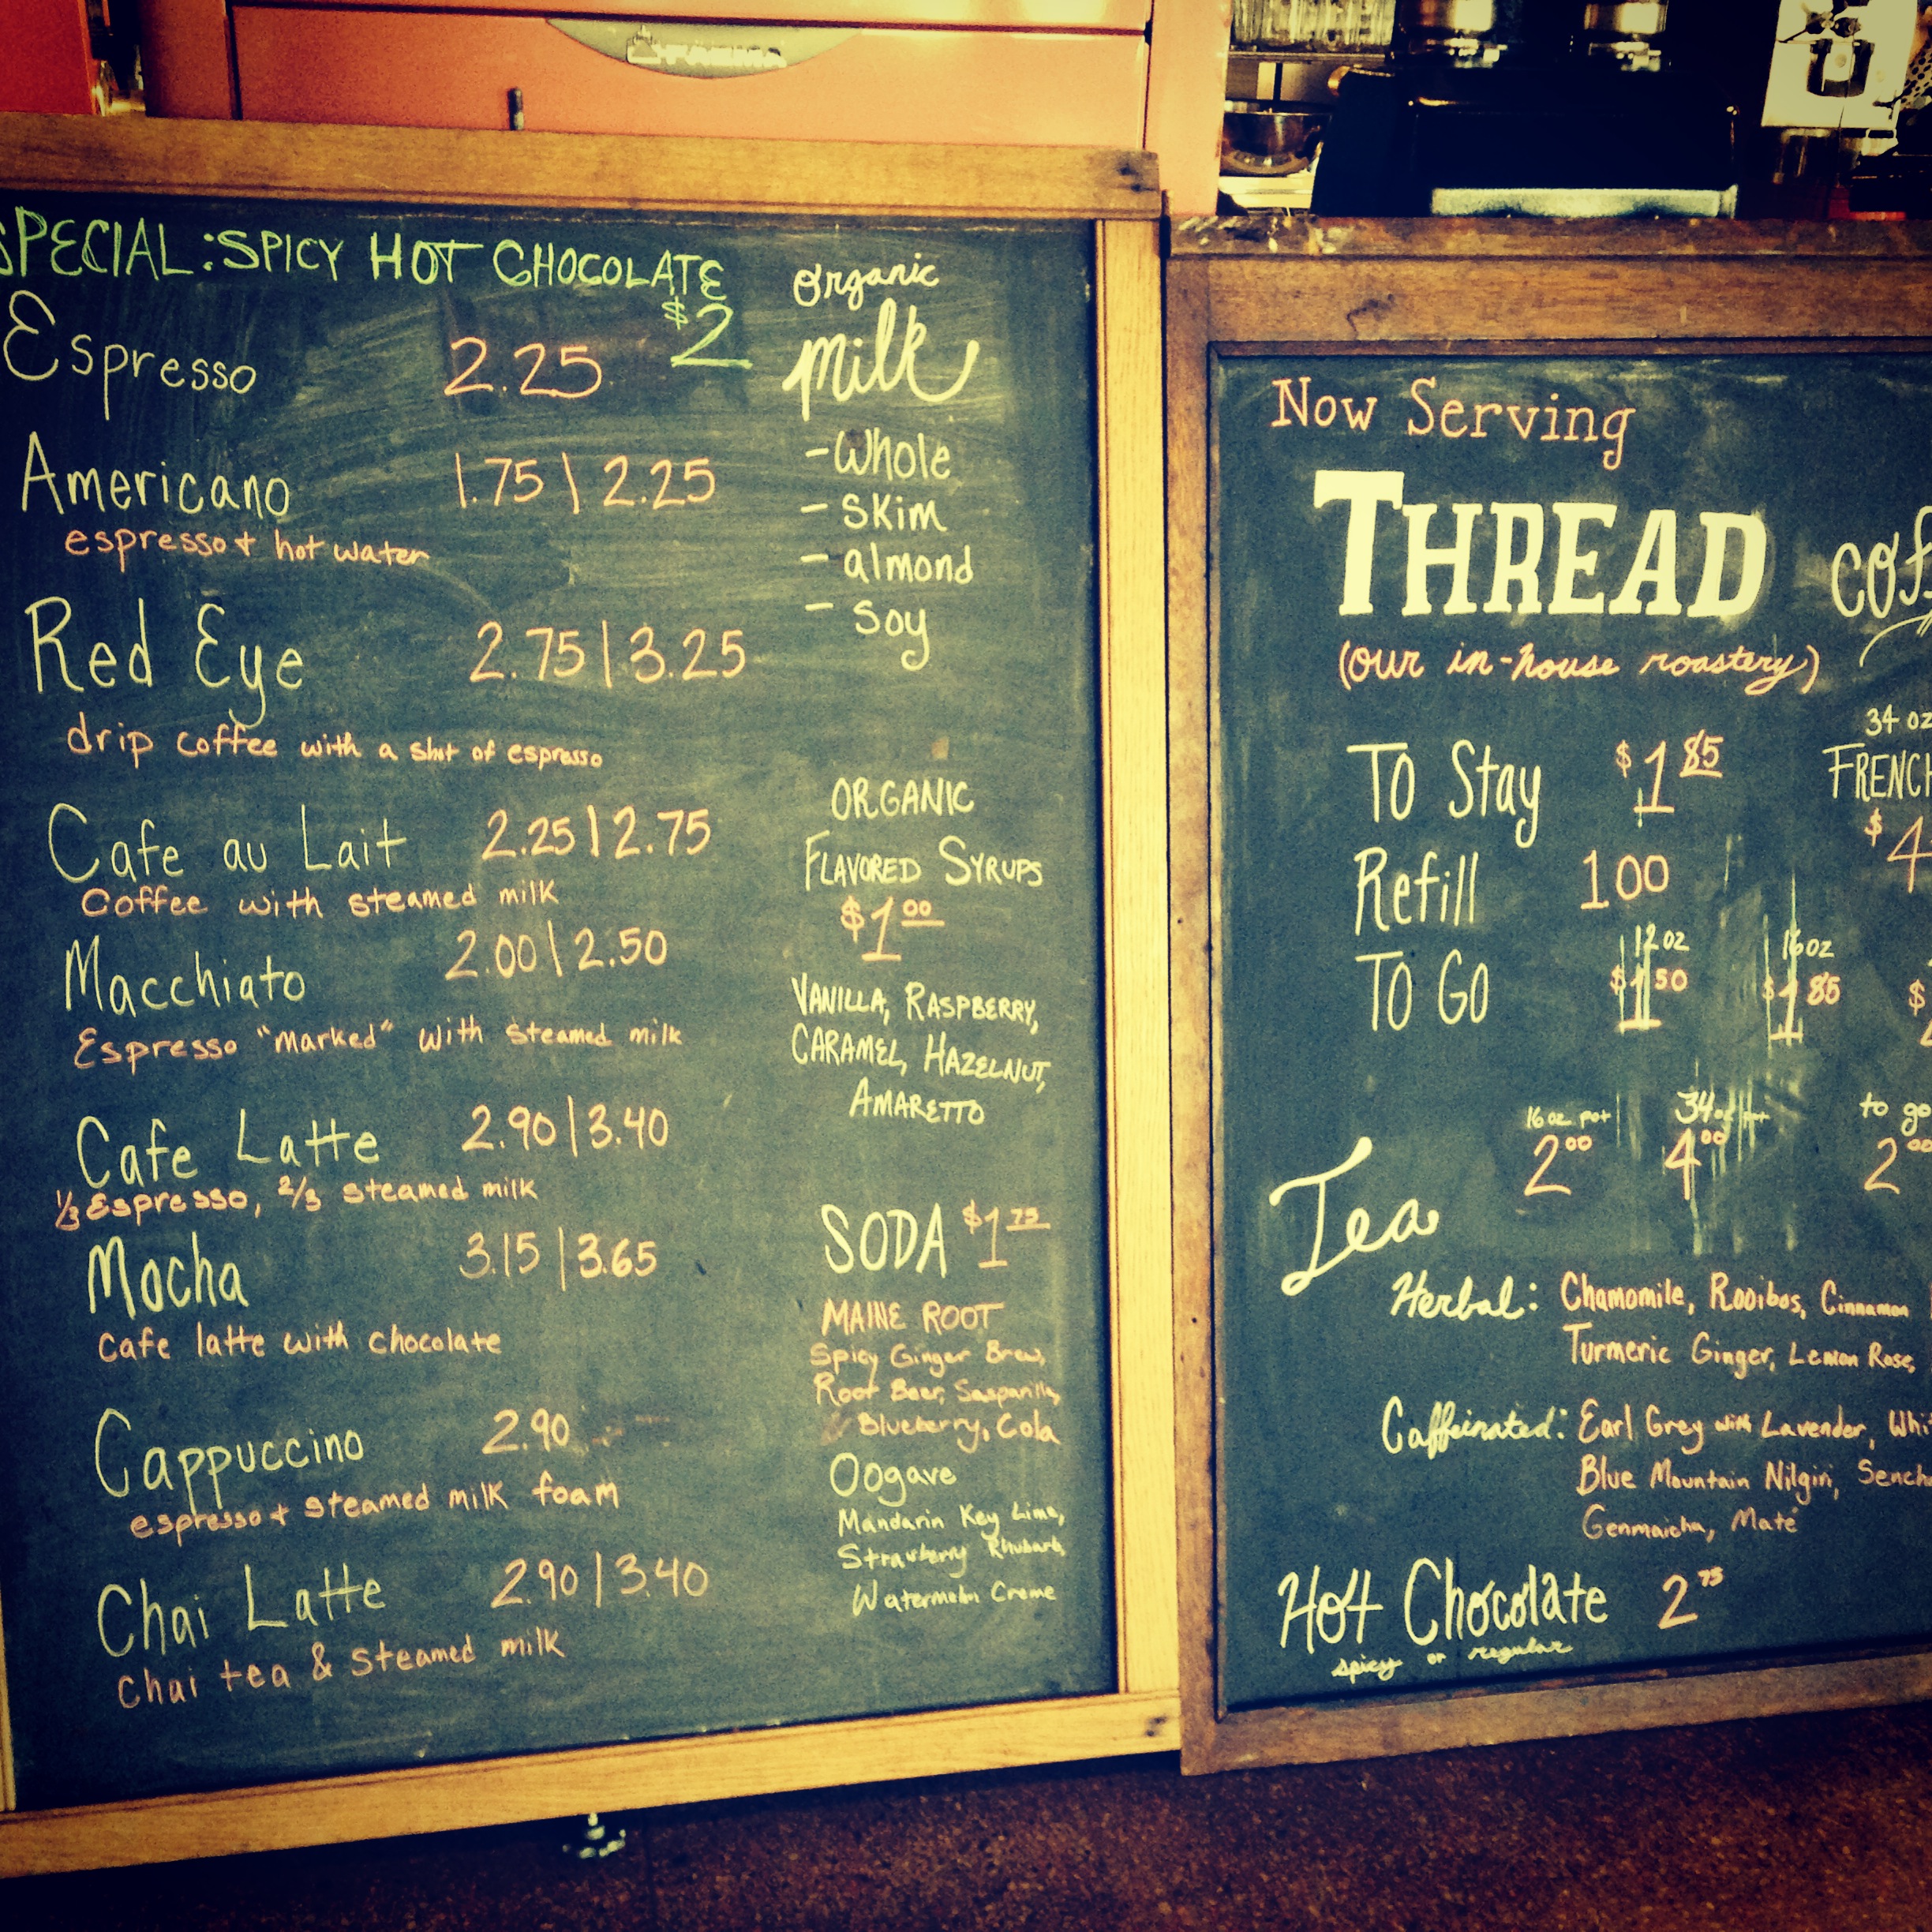 FAEMA
SPECIAL: SPICY HOT CHOCOLATE
$2
Espresso 2.25
Americano 1.75 | 2.25
espresso + hot water
Red Eye 2.75 | 3.25
drip coffee with a shot of espresso
Cafe au Lait 2.25 | 2.75
Coffee with steamed milk
Macchiato 2.00 | 2.50
Espresso "marked" with steamed milk
Cafe Latte 2.90 | 3.40
1/3 Espresso, 2/3 steamed milk
Mocha 3.15 | 3.65
Cafe latte with chocolate
Cappuccino 2.90
espresso + steamed milk foam
Chai Latte 2.90 | 3.40
Chai tea & steamed milk
organic
milk
- Whole
- skim
- almond
- soy
ORGANIC
FLAVORED SYRUPS
$1 00
VANILLA, RASPBERRY,
CARAMEL, HAZELNUT,
AMARETTO
SODA $1 75
MAINE ROOT
Spicy Ginger Brew,
Root Beer, Sasparilla,
Blueberry, Cola
Oogave
Mandarin Key Lime,
Strawberry Rhubarb,
Watermelon Creme
Now Serving
THREAD
(our in-house roastery)
34 oz
FRENCH
$4
To Stay $1 85
Refill 100
12 oz 16 oz
To Go $1 50 $1 85
16 oz pot 34 oz to go
2 00 4 00 2 00
Tea
Herbal: Chamomile, Rooibos, Cinnamon
Turmeric Ginger, Lemon Rose,
Caffeinated: Earl Grey with Lavender,
Blue Mountain Nilgiri,
Genmaicha, Maté
Hot Chocolate 2 75
spicy or regular